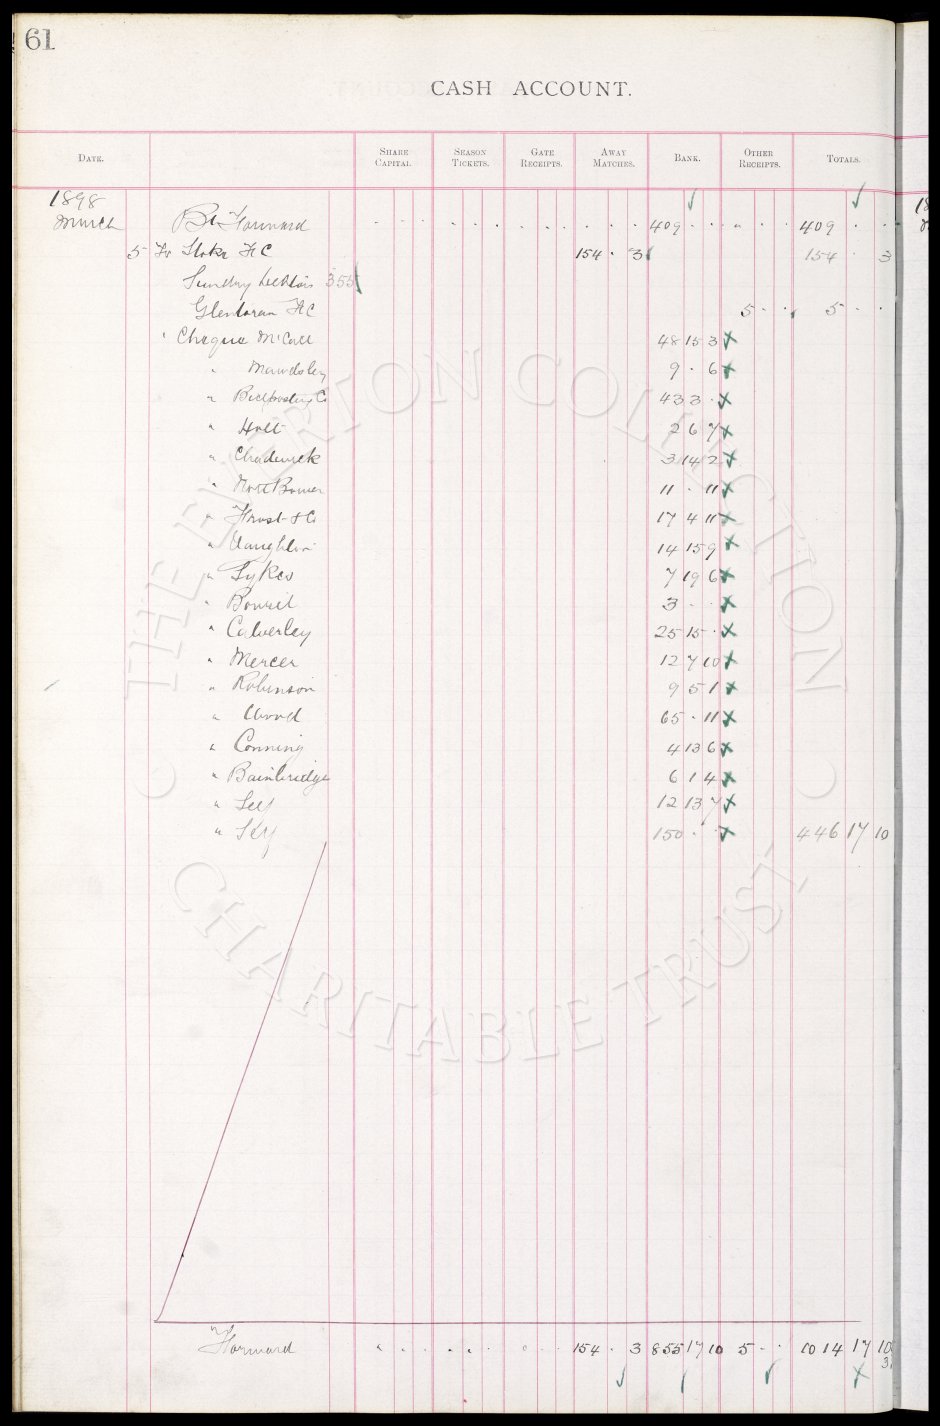 61
CASH ACCOUNT.
DATE. SHARE CAPITAL SEASON TICKETS. GATE RECEIPTS. AWAY MATCHES. BANK. OTHER RECEIPTS. TOTALS.
1898
March Bt Forward 409 . . 409 . .
5 Stoke FC 154 . 3 154 . 3
Sundry 355
Glentoran FC 5 . . 5 . .
" Cheque McCall 48 15 3
" Mawdsley 9 . 6
" Billposting Co 43 3 .
" Holt 2 6 7
" Chadwick 3 14 2
" 11 . 11
" Frost & Co 17 4 11
" 14 15 9
" Sykes 7 19 6
" 3 . .
" Calverley 25 15 .
" Mercer 12 7 10
" Robinson 9 5 1
" Wood 65 . 11
" Conning 4 13 6
" Bainbridge 6 1 4
" Self 12 13 7
" Self 150 . . 446 17 10
Forward 154 . 3 855 17 10 5 . . 1014 17 10
3
THE EVERTON COLLECTION
CHARITABLE TRUST